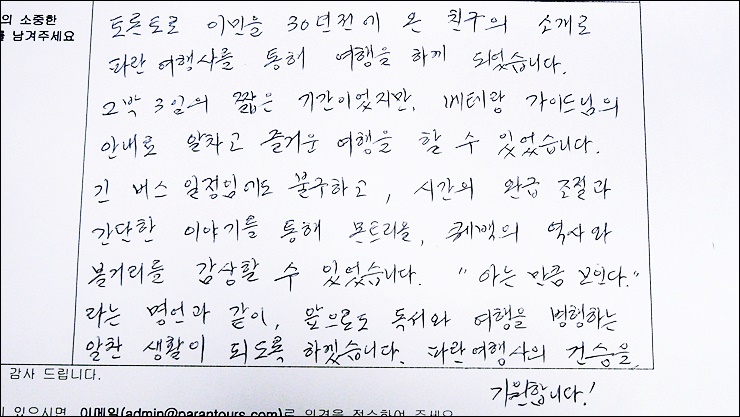 의 소중한
를 남겨주세요
토론토로 이민을 30년전에 온 친구의 소개로
파란 여행사를 통해 여행을 하게 되었습니다.
2박 3일의 짧은 기간이었지만, 베테랑 가이드님의
안내로 알차고 즐거운 여행을 할 수 있었습니다.
긴 버스 일정임에도 불구하고, 시간의 완급 조절과
간단한 이야기를 통해 몬트리올, 퀘백의 역사와
볼거리를 감상할 수 있었습니다. "아는 만큼 보인다."
라는 명언과 같이, 앞으로도 독서와 여행을 병행하는
알찬 생활이 되도록 하겠습니다. 파란여행사의 건승을
기원합니다!
감사 드립니다.
있으시면 이메일(admin@parantours.com)로 의견을 접수하여 주세요